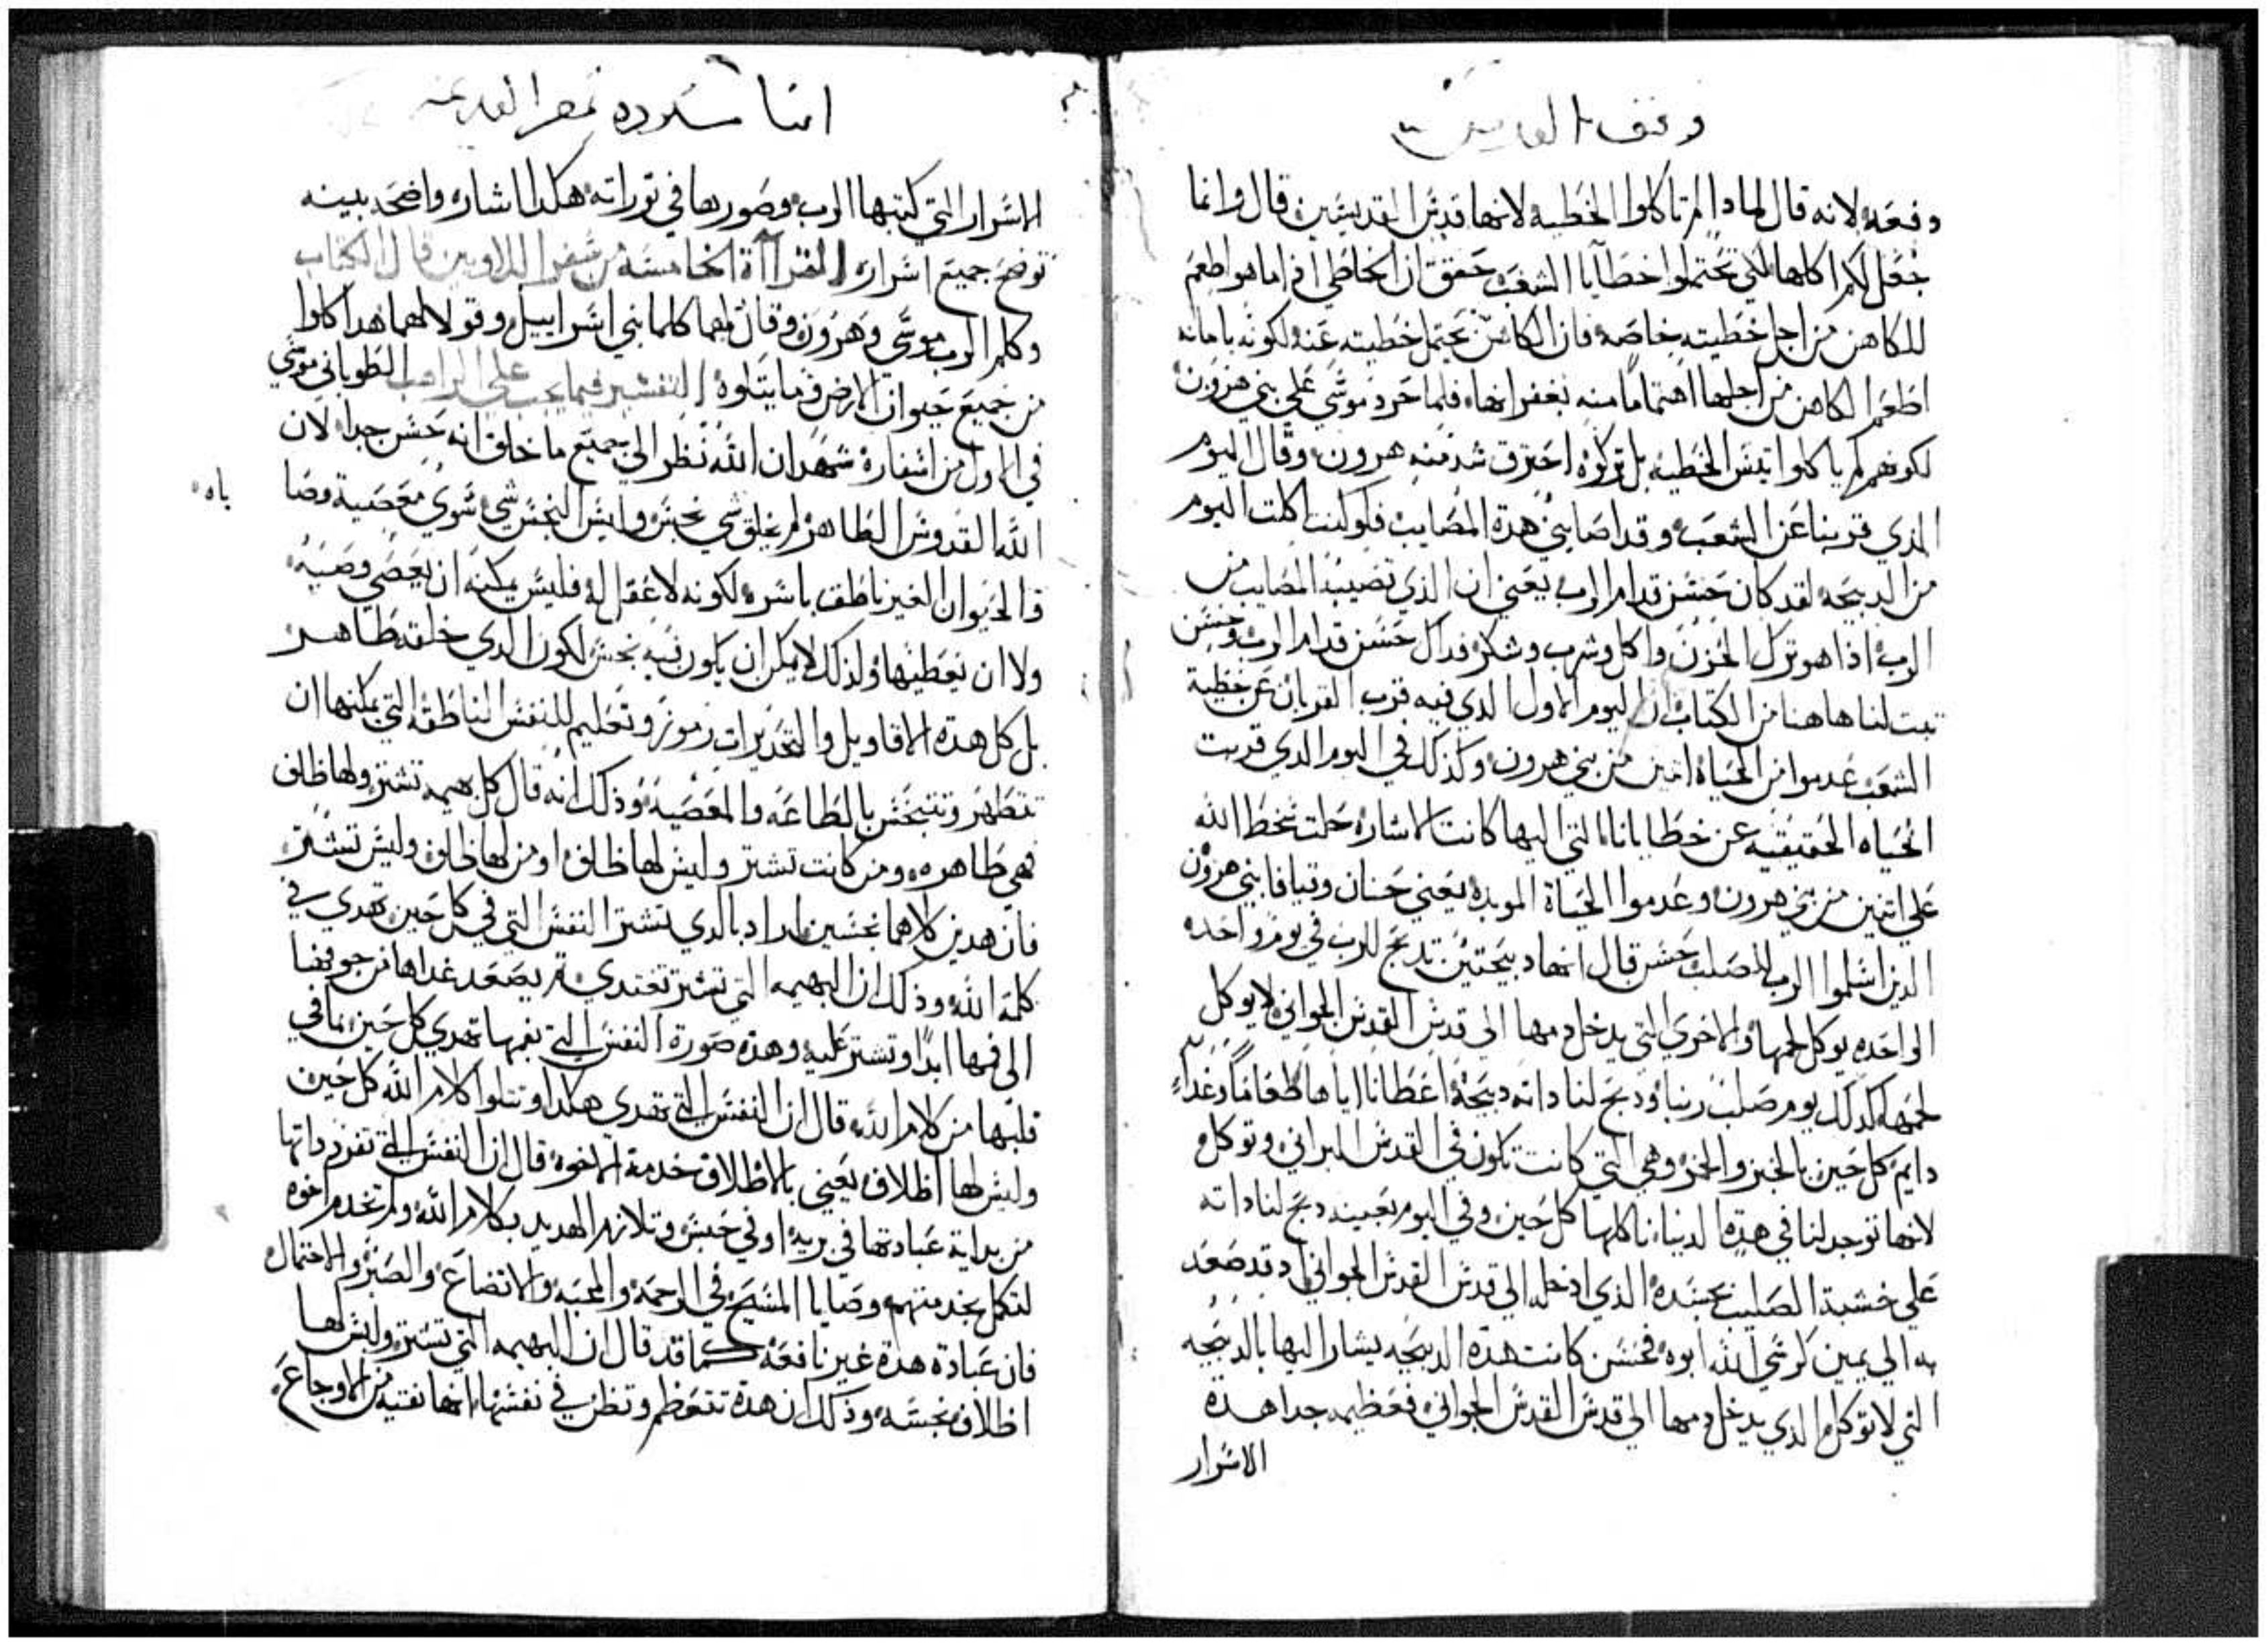 وقف القديس
دفعه لانه قال لمادا لم تاكلوا الخطيه لانها قدس القديسين قال وانما
جعل لكم اكلها لكي تحتملوا خطايا الشعب حقق ان الخاطي اذا ما هو اطعم
للكاهن من اجل خطيته خاصه فان الكاهن يحتمل خطيته عنه لكونه بامانه
اطعم الكاهن من اجلها اهتماما منه بغفرانها فلما حرد موسي علي بني هرون
لكونهم لم ياكلوا تيس الخطيه بل تركوه احترق شد منه هرون وقال اليوم
الذي قربنا عن الشعب وقد اصابني هده المصايب فلو كنت اكلت اليوم
من الدبيحه لقد كان حسن قدام الرب يعني ان الذي تصيبه المصايب من
الرب اذا هو ترك الحزن واكل وشرب وشكر فداك حسن قدام الرب وحسن
تبت لنا هاهنا من الكتاب ان اليوم الاول الدي فيه قرب القربان عن خطية
الشعب عدموا من الحياه اتنين من بني هرون وكذلك في اليوم الدي قربت
الحياه الحقيقيه عن خطايانا التي اليها كانت الاشاره حلت سخط الله
علي اتنين من بني هرون وعدموا الحياة الموبده يعني حنان وقيافا بني هرون
الذين اسلموا الرب للصلب حسن قال انها دبيحتين تدبح للرب في يوم واحد
الواحده يوكل لحمها والاخري التي يدخل دمها الي قدس القدس الجواني لا يوكل
لحمها كدلك يوم صلب ربنا ودبح لنا داته دبيحة اعطانا اياها طعاما وغداء
دايم كل حين بالخبز والخمر وهي التي كانت تكون في القدس البراني وتوكل
لانها توجد لنا في هذه الدنيا ناكلها كل حين وفي اليوم بعينه دبح لنا داته
علي خشبة الصليب بجسده الذي ادخله الي قدس القدس الجواني وقد صعد
به الي يمين كرسي الله ابوه فحسن كانت هده الدبيحه يشار اليها بالدبيحه
التي لا توكل الذي يدخل دمها الي قدس القدس الجواني فعظيمه جدا هده
الاسرار
الاسرار التي كتبها الرب وصورها في توراته هكدا اشاره واضحه بينه
توضح جميع اسراره القراآة الخامسة من سفر اللاويين قال الكتاب
وكلم الرب موسي وهرون وقال لهما كلما بني اسراييل وقولا لهما هدا كلوا
من جميع حيوان الارض وما يتلوه التفسير فيما يجب علي الراهب الطوباني موسي
في الاول من اسفاره شهد ان الله نظر الي جميع ما خلق انه حسن جدا لان
الله القدوس الطاهر لم يخلق شي نجس وليس النجس شي سوي معصية وصا
ياه
فالحيوان الغير ناطق باسره لكونه لا عقل له فليس يمكنه ان يعصي وصيه
ولا ان يعطيها ولذلك لا يمكن ان يكون فيه نجس لكون الدي خلقه طاهر
بل كل هده الاقاويل والتحديرات رموز وتعليم للنفس الناطقه التي يمكنها ان
تتطهر وتتنجس بالطاعه والمعصيه وذلك انه قال كل بهيمه تشتر ولها ظلف
فهي طاهره ومن كانت تشتر وليس لها ظلف او من لها ظلف وليس تشتر
فان هدين كلاهما نجسين اراد بالدي تشتر النفس التي في كل حين تهدي في
كلمة الله وذلك ان البهيمه التي تشتر تغتدي ثم يصعد غداها من جوفها
الي فمها ابدا وتشتر عليه وهده صورة النفس التي بفمها تهدي كل حين بما في
قلبها من كلام الله قال ان النفس التي تهدي هكدا وتتلوا كلام الله كل حين
وليس لها اظلاف يعني بالاظلاف خدمة الاخوه قال ان النفس التي تفرد داتها
من بداية عبادتها في بريه او في حبس وتلازم الهديد بكلام الله ولم تخدم اخوه
لتكمل بخدمتهم وصايا المسيح في الرحمه والمحبه والاتضاع والصبر والاحتمال
فان عبادة هده غير نافعه كما قد قال ان البهيمه التي تشتر وليس لها
اظلاف نجسه وذلك ان هده تتعظم وتظن في نفسها انها نقيه من الاوجاع